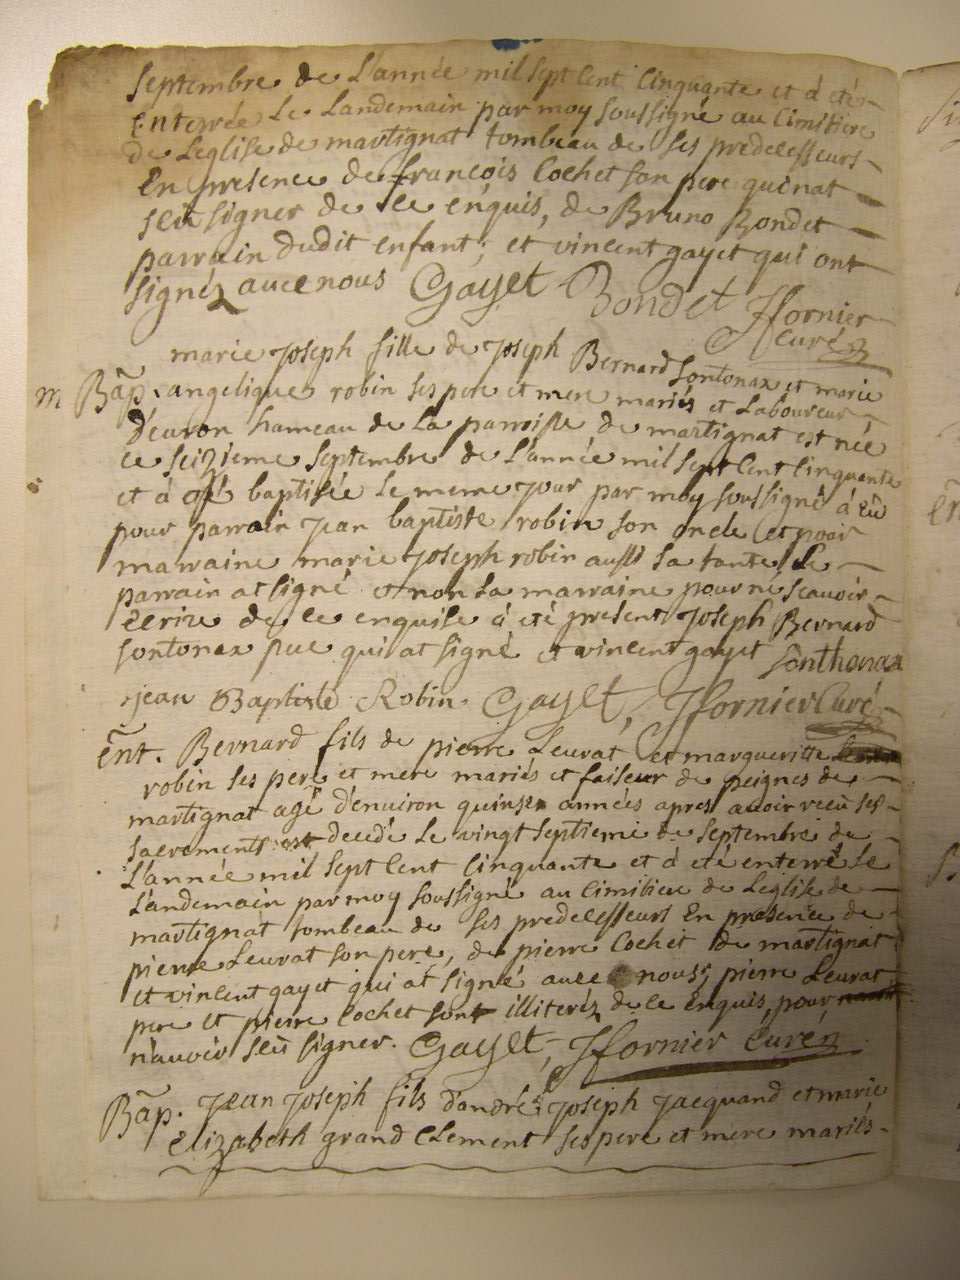 septembre de L'année mil sept cent cinquante et à eté
enterrée Le Landemain par moy soussigné au Cimitiere
de Leglise de martignat tombeau de ses predecesseurs
En presence de françois Cochet son pere qui nat
sçeü signer de ce enquis, de Bruno Bondet
parrain dudit enfant, et vincent gayet qui ont
signéz avec nous Gayet Bondet JFfornier
Curé
marie joseph fille de joseph Bernard Sontonax et marie
m Bãp. angelique robin ses pere et mere mariés et Laboureur
d'evron hameau de La parroisse de martignat est née
ce seizieme septembre de L'année mil sept cent cinquante
et à eté baptisée Le meme jour par moy soussigné à eü
pour parrain jean baptiste robin son oncle et pour
marraine marie joseph robin aussi sa tante Le
parrain at signé et non la marraine pour ne sçavoir
ecrire de ce enquise à eté present joseph Bernard
sontonax pere qui at signé et vincent gayet Sonthonax
jean Baptiste Robin Gayet, JFfornier Curé
Ent. Bernard fils de pierre Levrat et margueritte
robin ses pere et mere mariés et faiseur de peignes de
martignat agé d'environ quinse années apres avoir reçeü ses
sacrements est decedé Le vingt septieme de septembre de
L'année mil sept cent cinquante et à eté enterré Le
Landemain par moy soussigné au Cimitiere de Leglise de
martignat tombeau de ses predecesseurs En presence de
pierre Levrat son pere, de pierre Cochet de martignat
et vincent gayet qui at signé avec nous, pierre Levrat
pere et pierre Cochet sont illiteréz de ce Enquis, pour
n'avoir sçeü signer. Gayet, JFfornier Curé
Bãp. Jean joseph fils d'andré joseph jacquand et marie
elizabeth grand Clement ses pere et mere mariés